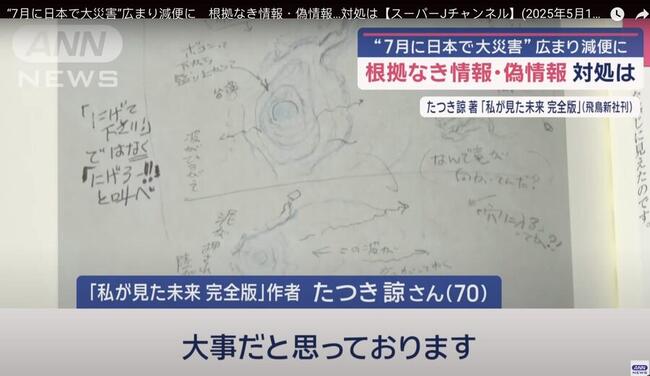 “7月に日本で大災害”広まり減便に　根拠なき情報・偽情報...対処は【スーパーJチャンネル】(2025年5月1...
ANN
NEWS
“7月に日本で大災害” 広まり減便に
根拠なき情報・偽情報 対処は
たつき諒 著「私が見た未来 完全版」(飛鳥新社刊)
「にげて
下さい!」
ではなく
「にげろー!!」
と叫べ
なんで竜が
この波が
に見えたのです。
「私が見た未来 完全版」作者　たつき 諒さん(70)
大事だと思っております
ANN
NEWS